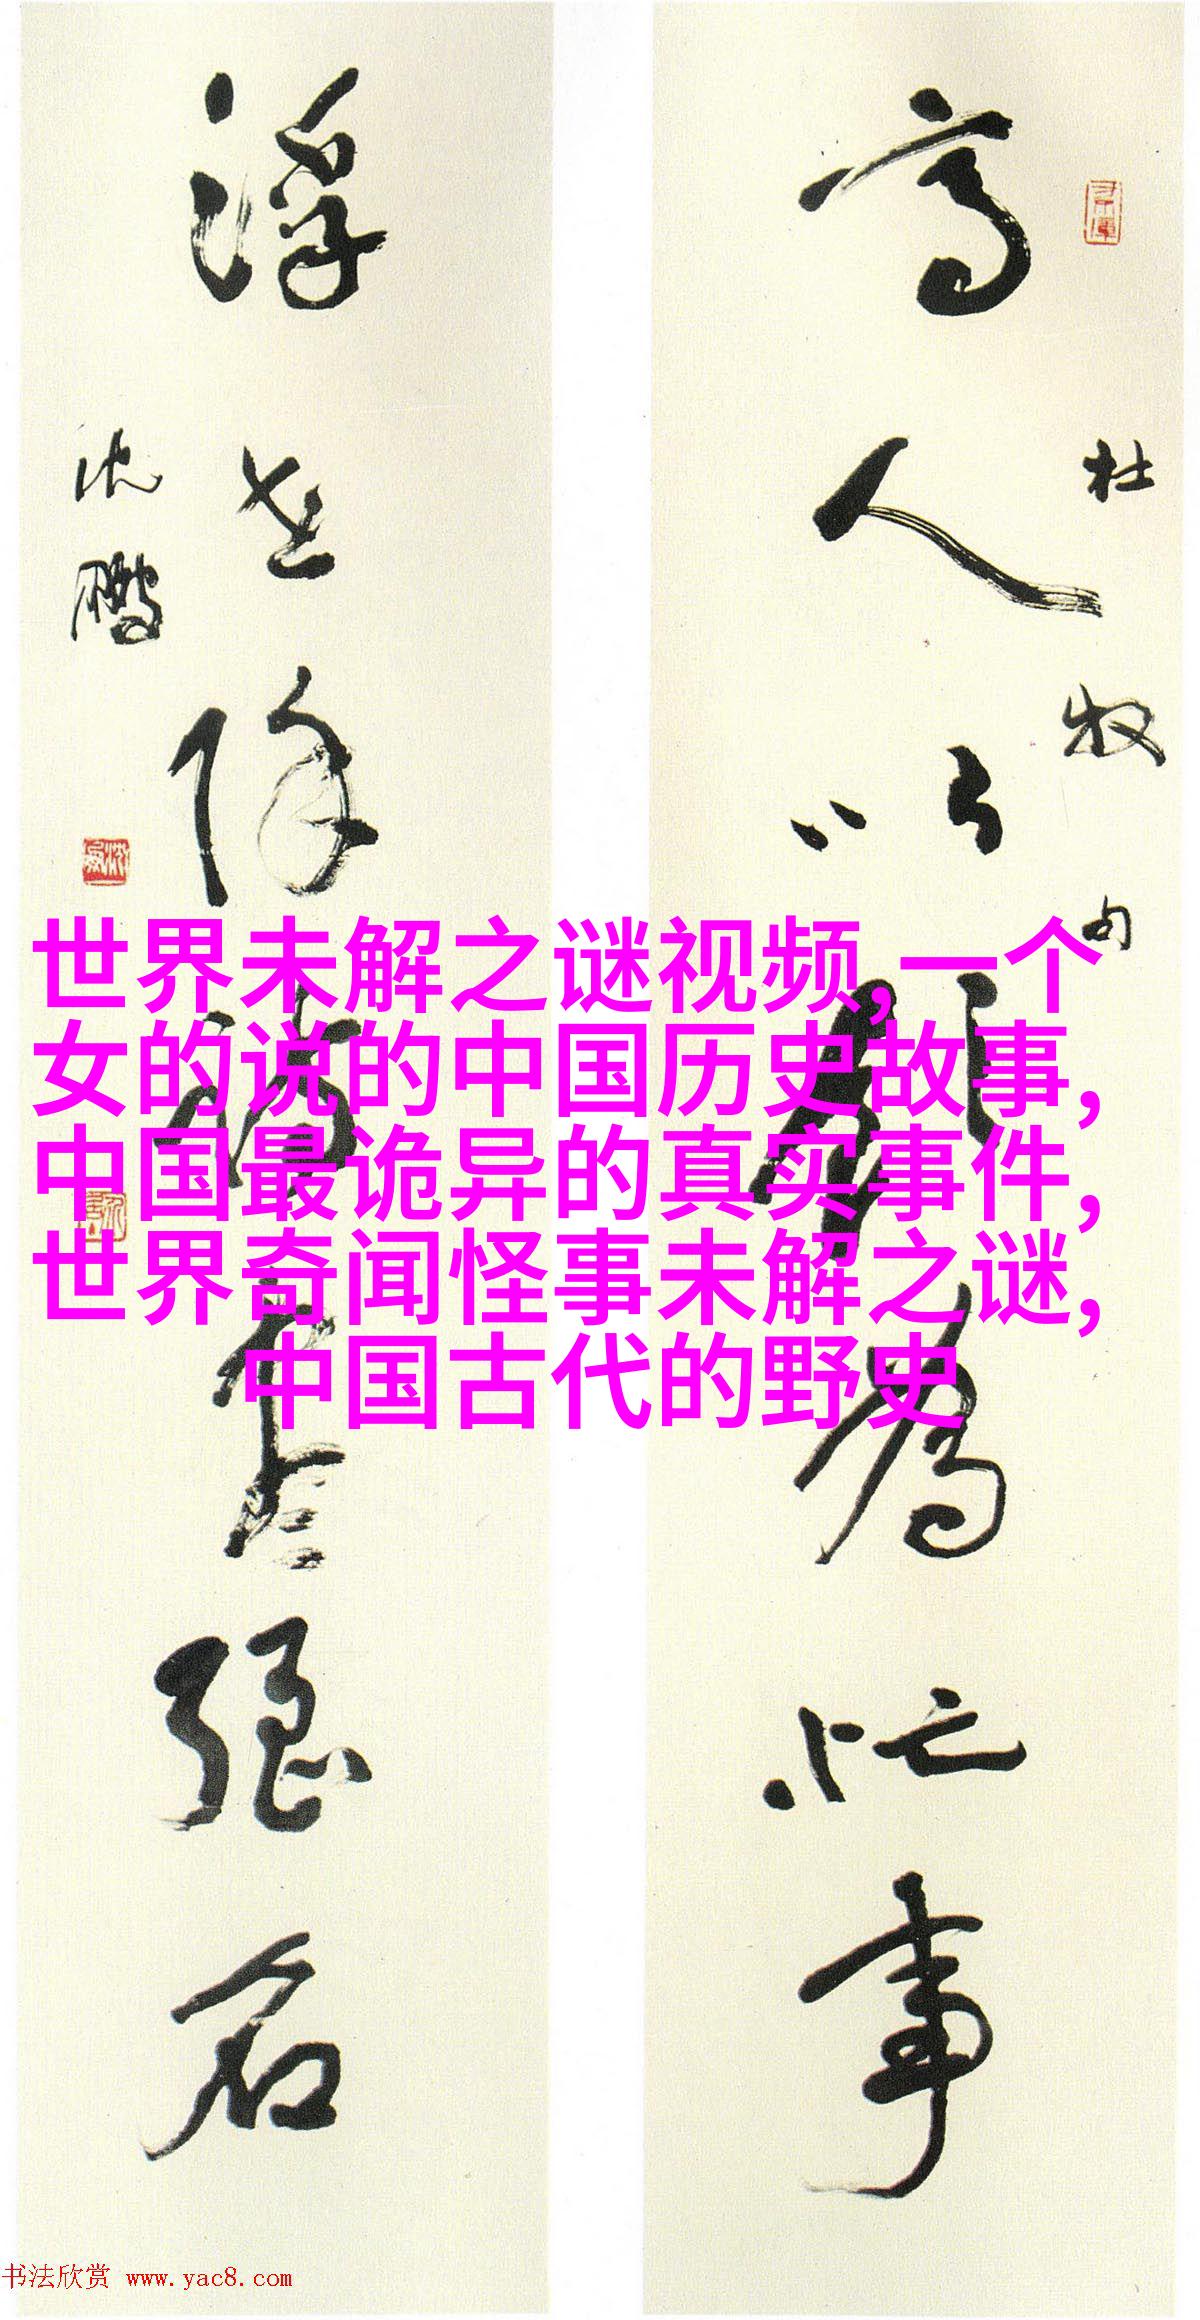 杜牧句
高人以飲為忙事
浮世除詩盡強名
沈鵬
世界未解之谜视频,一个
女的说的中国历史故事,
中国最诡异的真实事件,
世界奇闻怪事未解之谜,
中国古代的野史
书法欣赏 www.yac8.com